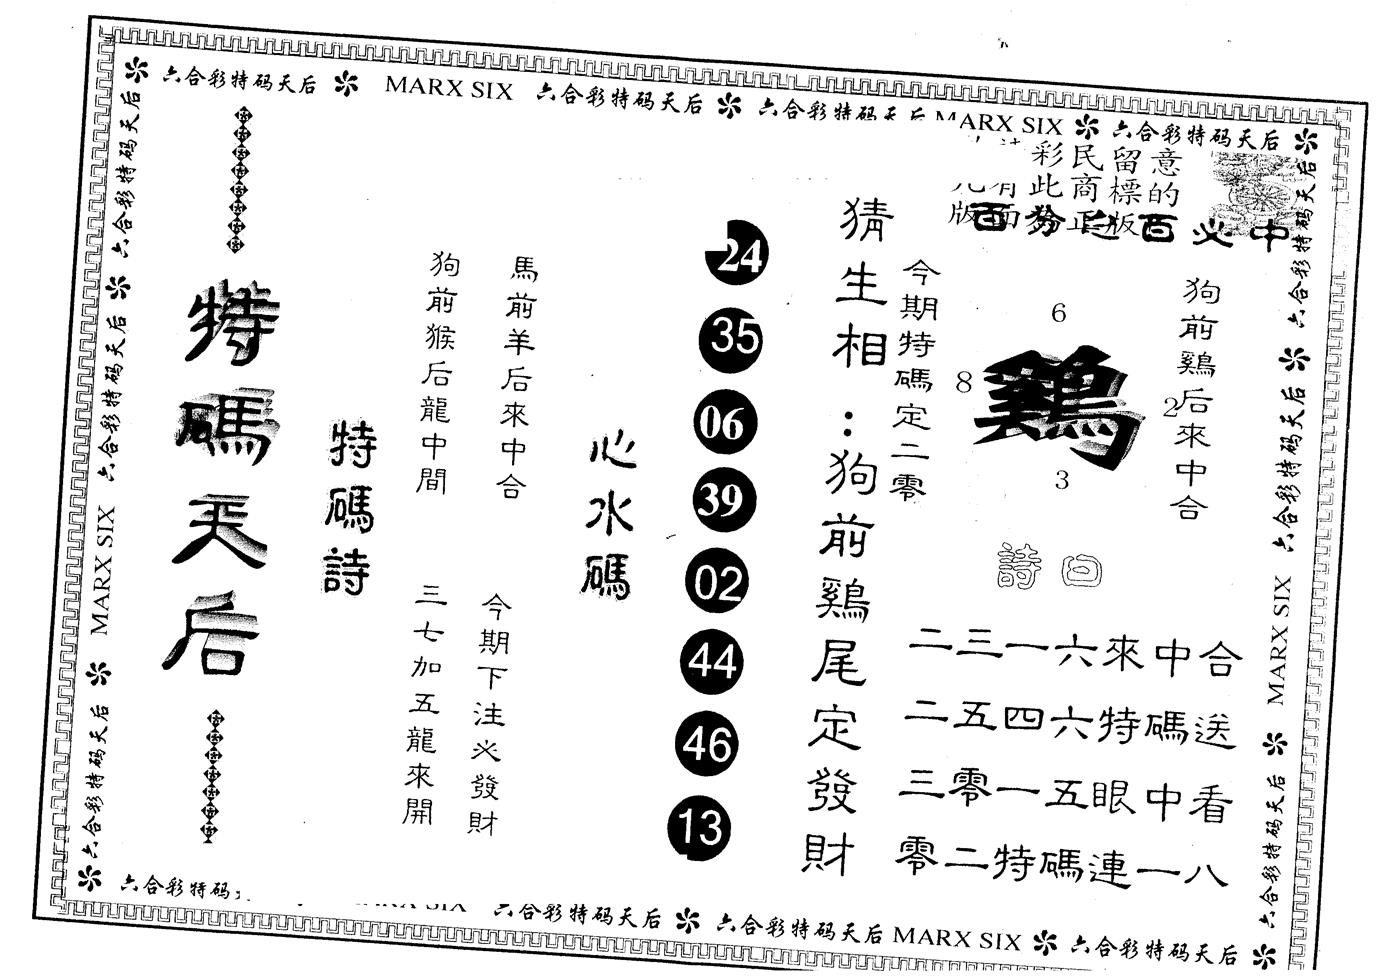 六合彩特码天后 MARX SIX 六合彩特码天后 六合彩特码天后 MARX SIX 六合彩特码天后
彩民留意
有此商標的
版面為正版
百分之百必中
特碼天后
特碼詩
馬前羊后來中合
狗前猴后龍中間
今期下注必發財
三七加五龍來開
心水碼
24
35
06
39
02
44
46
13
猜生相：狗前鷄尾定發財
今期特碼定二零
6
8
鷄
2
3
狗前鷄后來中合
詩曰
二三一六來中合
二五四六特碼送
三零一五眼中看
零二特碼連一八
六合彩特码天后
六合彩特码天后
MARX SIX
六合彩特码天后
六合彩特码天后
六合彩特码天后
六合彩特码天后
MARX SIX
六合彩特码天后
六合彩特码 MARX SIX 六合彩特码天后 六合彩特码天后 MARX SIX 六合彩特码天后